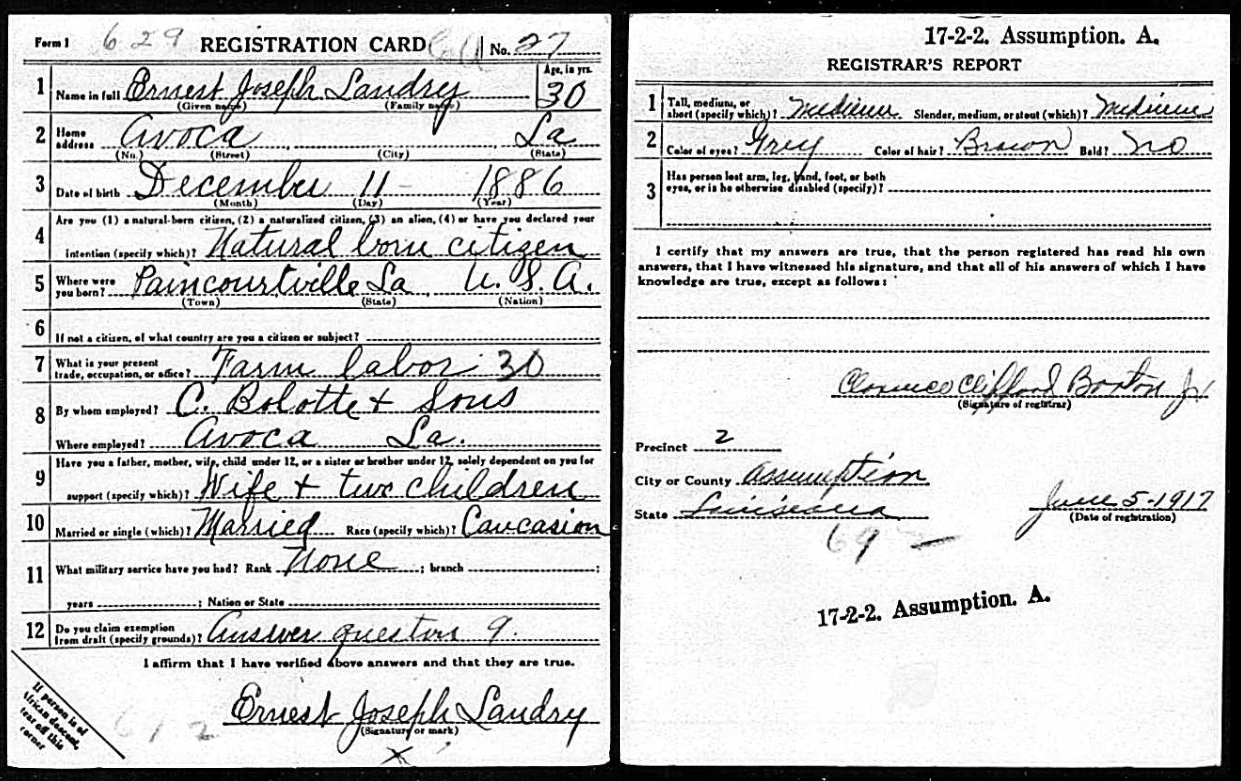 Form 1 629 REGISTRATION CARD No. 27
1 Name in full Ernest Joseph Landry Age, in yrs. 30
(Given name) (Family name)
2 Home address Avoca La
(No.) (Street) (City) (State)
3 Date of birth December 11 - 1886
(Month) (Day) (Year)
4 Are you (1) a natural-born citizen, (2) a naturalized citizen, (3) an alien, (4) or have you declared your
intention (specify which)? Natural born citizen
5 Where were you born? Paincourtville La U. S. A.
(Town) (State) (Nation)
6 If not a citizen, of what country are you a citizen or subject?
7 What is your present trade, occupation, or office? Farm labor 30
8 By whom employed? C. Bolotte + Sons
Where employed? Avoca La.
9 Have you a father, mother, wife, child under 12, or a sister or brother under 12, solely dependent on you for
support (specify which)? Wife + two children
10 Married or single (which)? Married Race (specify which)? Caucasion
11 What military service have you had? Rank None ; branch ;
years ; Nation or State
12 Do you claim exemption from draft (specify grounds)? Answer question 9.
I affirm that I have verified above answers and that they are true.
Ernest Joseph Landry
(Signature or mark)
X
If person is of
African descent,
tear off this
corner
69 2
17-2-2. Assumption. A.
REGISTRAR'S REPORT
1 Tall, medium, or short (specify which)? Medium Slender, medium, or stout (which)? Medium
2 Color of eyes? Grey Color of hair? Brown Bald? No
3 Has person lost arm, leg, hand, foot, or both
eyes, or is he otherwise disabled (specify)?
I certify that my answers are true, that the person registered has read his own
answers, that I have witnessed his signature, and that all of his answers of which I have
knowledge are true, except as follows:
Clarence Clifford Barton Jr
(Signature of registrar)
Precinct 2
City or County Assumption
State Louisiana June 5-1917
(Date of registration)
69 -
17-2-2. Assumption. A.